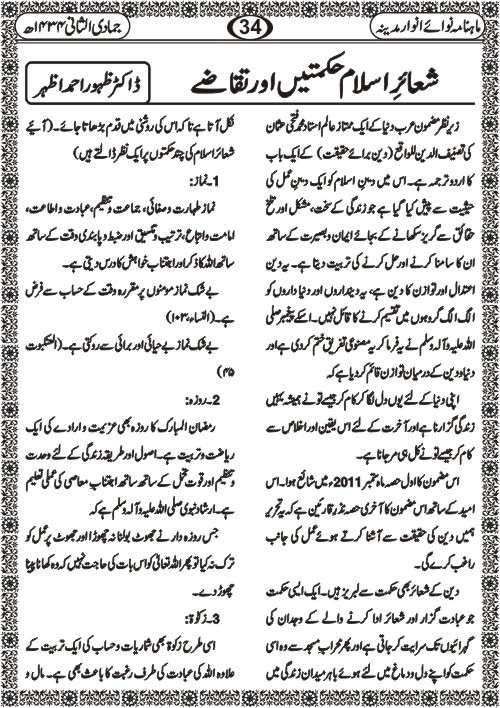 ماہنامہ نوائے انوار مدینہ
34
جمادی الثانی ۱۴۳۴ھ
شعائرِ اسلام حکمتیں اور تقاضے
ڈاکٹر ظہور احمد اظہر
زیر نظر مضمون عرب دنیا کے ایک ممتاز عالم استاد محمد فتحی عثمان
کی تصنیف الدین للواقع (دین برائے حقیقت) کے ایک باب
کا اردو ترجمہ ہے۔ اس میں دین اسلام کو ایک دین عمل کی
حیثیت سے پیش کیا گیا ہے جو زندگی کے سخت، مشکل اور تلخ
حقائق سے گریز سکھانے کے بجائے ایمان و بصیرت کے ساتھ
ان کا سامنا کرنے اور حل کرنے کی تربیت دیتا ہے۔ یہ دین
اعتدال اور توازن کا دین ہے، یہ دینداروں اور دنیا داروں کو
الگ الگ گروہوں میں تقسیم کرنے کا قائل نہیں۔ اسکے پیغمبر صلی
اللہ علیہ وآلہ وسلم نے یہ فرما کر یہ مصنوعی تفریق ختم کر دی ہے اور
دنیا و دین کے درمیان توازن قائم کر دیا ہے کہ
اپنی دنیا کے لئے یوں دل لگا کر کام کر جیسے تو نے ہمیشہ یہیں
زندگی گزارنا ہے اور آخرت کے لئے اس یقین اور اخلاص سے
کام کر جیسے تو نے کل ہی مر جانا ہے۔
اس مضمون کا اول حصہ ماہ ستمبر 2011 میں شائع ہوا۔ اس
امید کے ساتھ اس مضمون کا آخری حصہ نذر قارئین ہے کہ یہ تحریر
ہمیں دین کی حقیقت سے آشنا کرتے ہوئے عمل کی جانب
راغب کرے گی۔
دین کے شعائر بھی حکمت سے لبریز ہیں۔ ایک ایسی حکمت
جو عبادت گزار اور شعائر ادا کرنے والے کے وجدان کی
گہرائیوں تک سرایت کر جاتی ہے اور پھر محراب مسجد سے وہ اسی
حکمت کو اپنے دل و دماغ میں لئے ہوئے باہر میدان زندگی میں
نکل آتا ہے تاکہ اس کی روشنی میں قدم بڑھاتا جائے۔ (آیئے
شعائر اسلام کی چند حکمتوں پر ایک نظر ڈالتے ہیں)
1۔ نماز:
نماز طہارت و صفائی، جماعت و تنظیم، عبادت و اطاعت،
امامت و اتباع، ترتیب و تنسیق اور ضبط و پابندی وقت کے ساتھ
ساتھ اللہ کا ذکر اور اجتناب خواہش کا درس دیتی ہے۔
بے شک نماز مومنوں پر مقررہ وقت کے حساب سے فرض
ہے۔ (النساء، ۱۰۳)
بے شک نماز بے حیائی اور برائی سے روکتی ہے۔ (العنکبوت
۴۵)
2۔ روزہ:
رمضان المبارک کا روزہ بھی عزیمت و ارادے کی ایک
ریاضت و تربیت ہے۔ اصول اور طریقہ زندگی کے لئے وحدت
و تنظیم اور قوت تحمل کے ساتھ ساتھ اجتناب معاصی کی عملی تعلیم
ہے۔ ارشاد نبوی صلی اللہ علیہ وآلہ وسلم ہے کہ
جس روزہ دار نے جھوٹ بولنا نہ چھوڑا اور جھوٹ پر عمل کو
ترک نہ کیا تو پھر اللہ تعالیٰ کو اس بات کی حاجت نہیں کہ وہ کھانا پینا
چھوڑ دے۔
3۔ زکوٰۃ:
اسی طرح زکوٰۃ بھی شماریات و حساب کی ایک تربیت کے
علاوہ اللہ کی عبادت کی طرف رغبت کا باعث بھی ہے۔ مال و